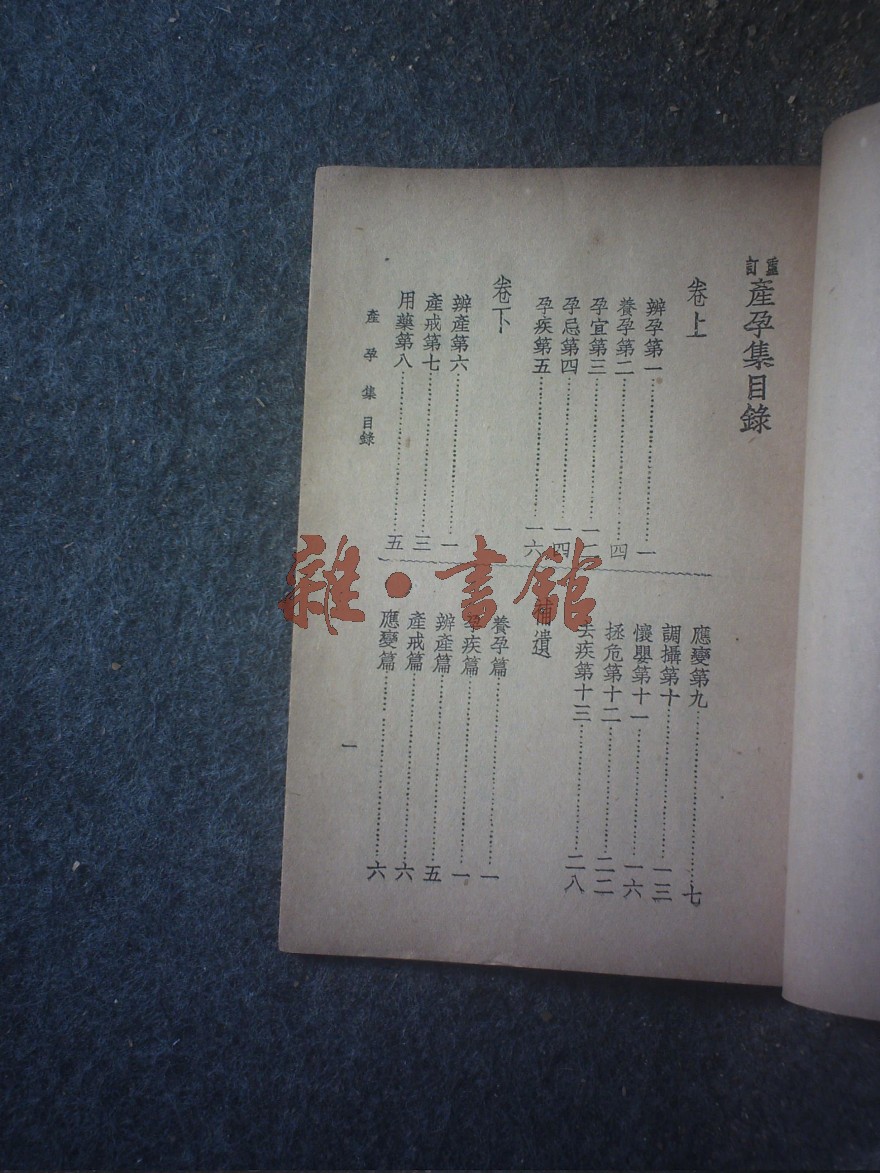 重訂產孕集目錄
卷上
辨孕第一……一
養孕第二……四
孕宜第三……一二
孕忌第四……一四
孕疾第五……一六
卷下
辨產第六……一
產戒第七……三
用藥第八……五
應變第九……七
調攝第十……一三
懷嬰第十一……一六
拯危第十二……二二
去疾第十三……二八
補遺
養孕篇……一
孕疾篇……一
辨產篇……五
產戒篇……六
應變篇……六
產孕集 目錄
一
雜·書館